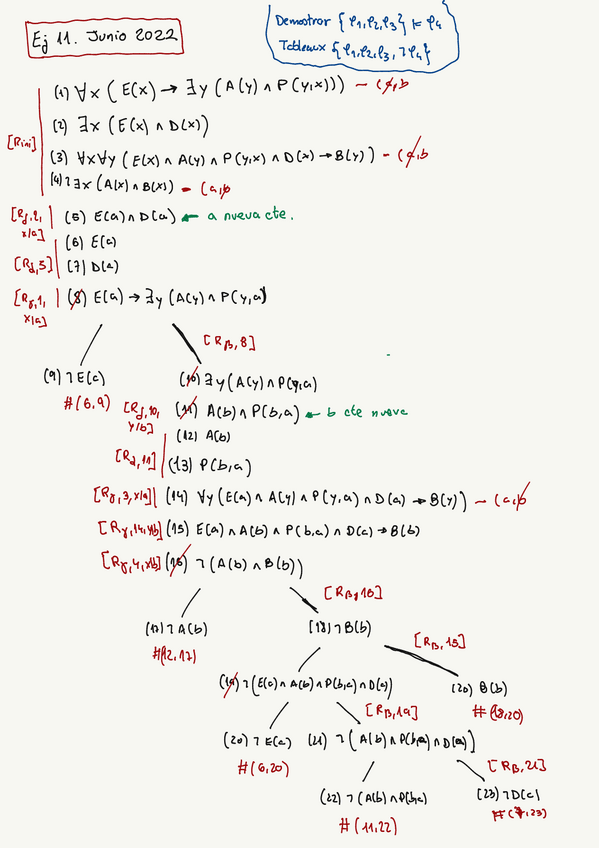 Ej 11. Junio 2022
Demostrar {φ1,φ2,φ3} ⊨ φ4
Tableaux {φ1,φ2,φ3,¬φ4}
[Rini]
(1) ∀x (E(x) → ∃y (A(y) ∧ P(y,x))) – (a,b
(2) ∃x (E(x) ∧ D(x))
(3) ∀x∀y (E(x) ∧ A(y) ∧ P(y,x) ∧ D(x) → B(y)) – (a,b
(4) ¬∃x (A(x) ∧ B(x)) – (a,b
[Rδ,2, x/a] (5) E(a) ∧ D(a) ← a nueva cte.
[Rα,5] (6) E(a)
(7) D(a)
[Rγ,1, x/a] (8) E(a) → ∃y (A(y) ∧ P(y,a))
[Rβ,8]
(9) ¬E(a) (10) ∃y (A(y) ∧ P(y,a)
#(6,9) [Rδ,10, y/b] (11) A(b) ∧ P(b,a) ← b cte nueva
[Rα,11] (12) A(b)
(13) P(b,a)
[Rγ,3,x/a] (14) ∀y (E(a) ∧ A(y) ∧ P(y,a) ∧ D(a) → B(y)) – (a,b
[Rγ,14,y/b] (15) E(a) ∧ A(b) ∧ P(b,a) ∧ D(a) → B(b)
[Rγ,4,x/b] (16) ¬(A(b) ∧ B(b))
[Rβ,16]
(17) ¬A(b) (18) ¬B(b)
#(12,17) [Rβ,15]
(19) ¬(E(a) ∧ A(b) ∧ P(b,a) ∧ D(a)) (20) B(b)
[Rβ,19] #(18,20)
(20) ¬E(a) (21) ¬(A(b) ∧ P(b,a) ∧ D(a))
#(6,20) [Rβ,21]
(22) ¬(A(b) ∧ P(b,a) (23) ¬D(a)
#(11,22) #(7,23)